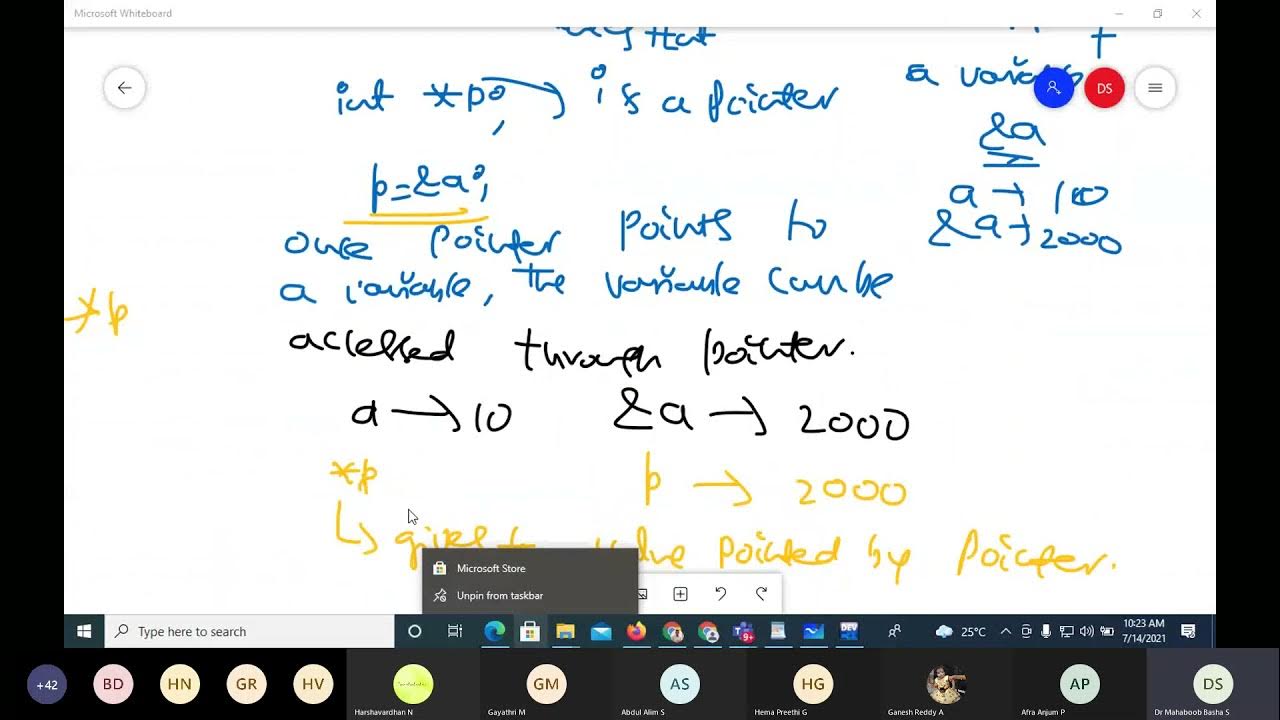 Microsoft Whiteboard
that
a variable
DS
int *p; → is a pointer
&a
p=&a;
a → 100
&a → 2000
once pointer points to
a variable, the variable can be
*p
accessed through pointer.
a → 10 &a → 2000
*p p → 2000
↳ gives value pointed by pointer.
Microsoft Store
Unpin from taskbar
Type here to search
9+
DEV
25°C
10:23 AM
7/14/2021
+42
BD
HN
GR
HV
Harshavardhan N
GM
Gayathri M
AS
Abdul Alim S
HG
Hema Preethi G
Ganesh Reddy A
AP
Afra Anjum P
DS
Dr Mahaboob Basha S